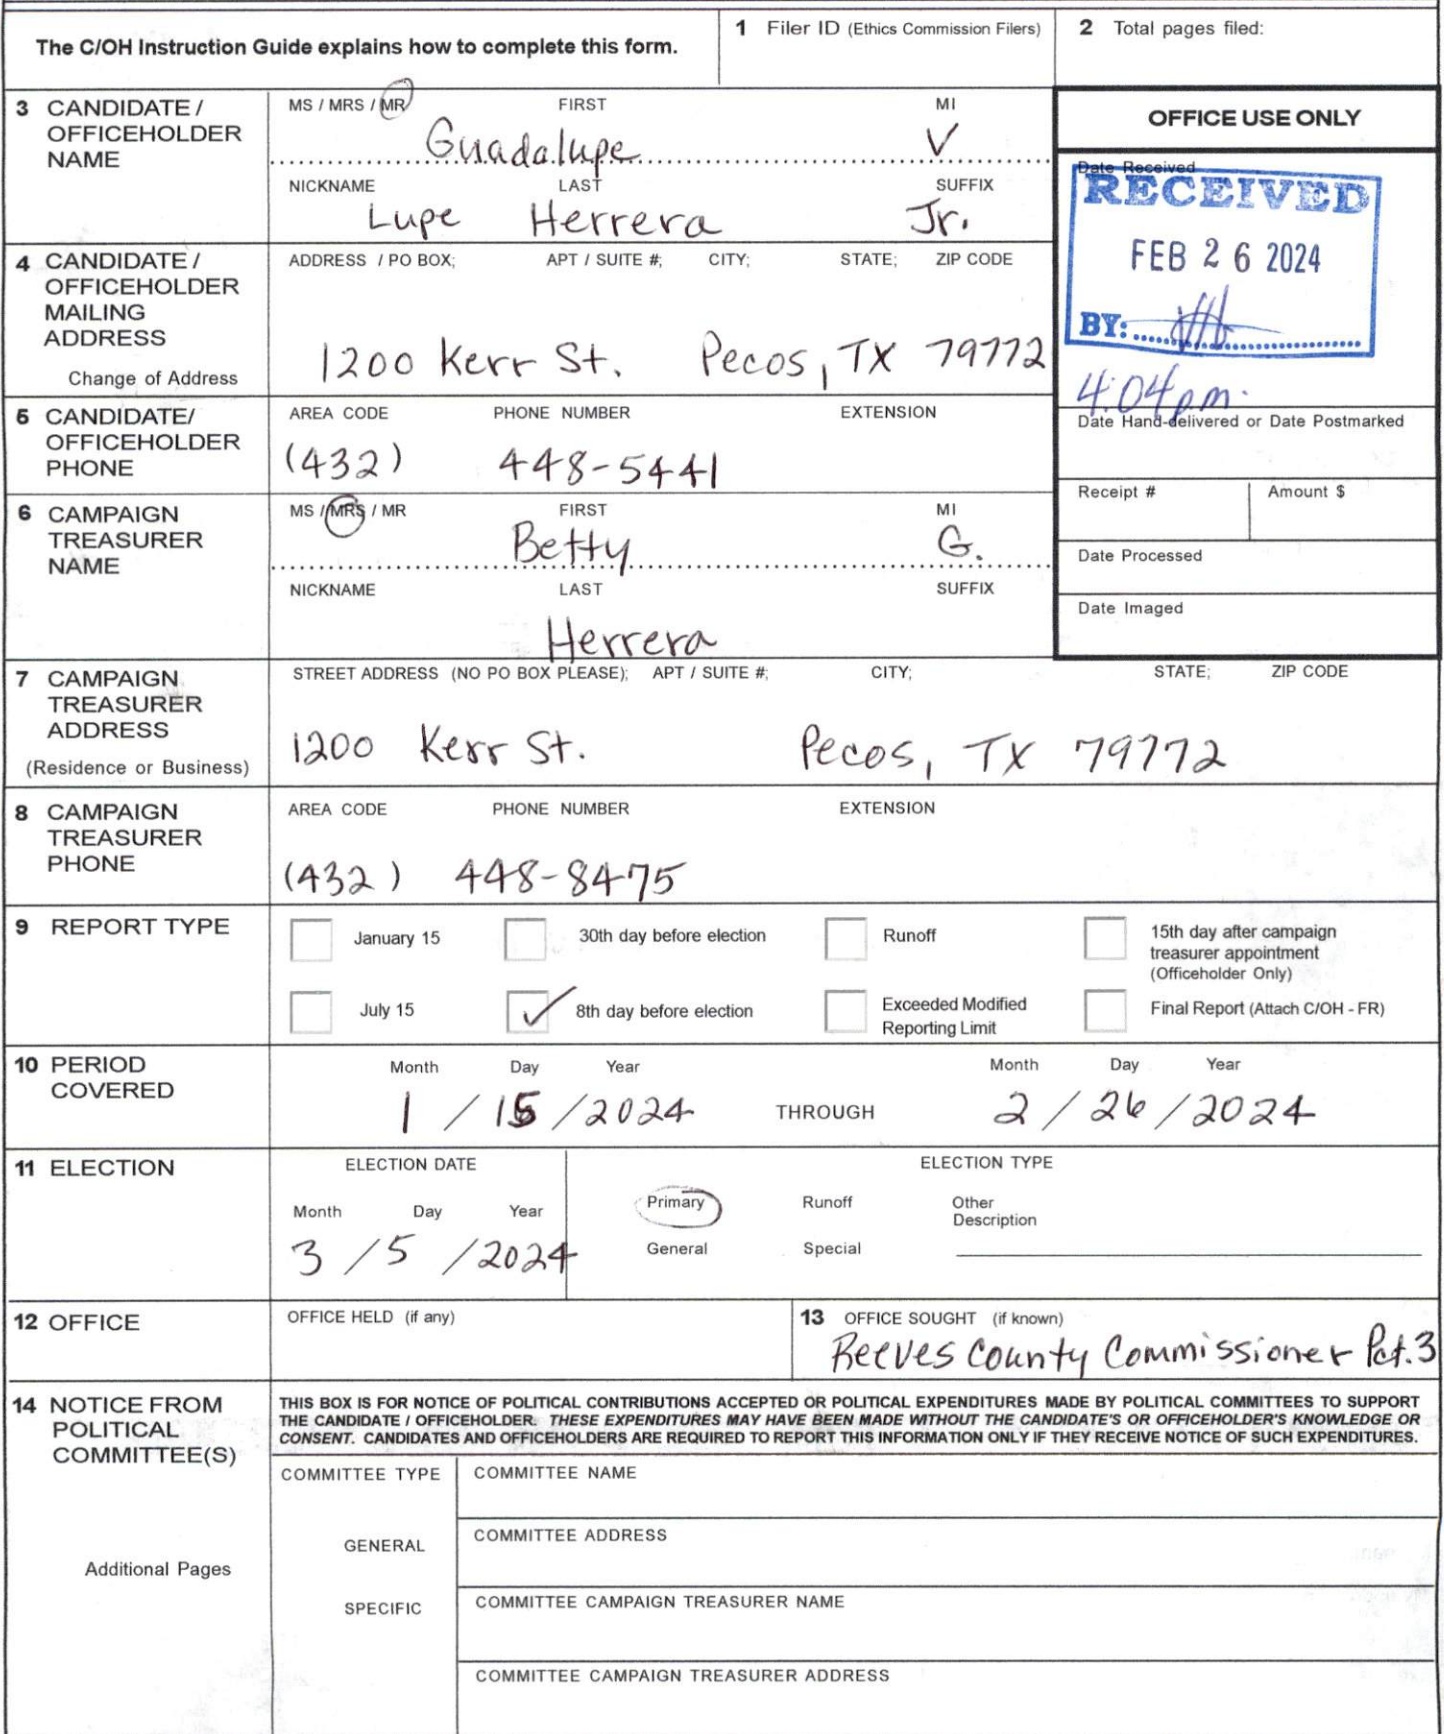 The C/OH Instruction Guide explains how to complete this form.
1 Filer ID (Ethics Commission Filers)
2 Total pages filed:
3 CANDIDATE / OFFICEHOLDER NAME
MS / MRS / MR FIRST MI
Guadalupe V
NICKNAME LAST SUFFIX
Lupe Herrera Jr.
OFFICE USE ONLY
Date Received
RECEIVED
FEB 26 2024
BY:
4:04 pm.
Date Hand-delivered or Date Postmarked
Receipt # Amount $
Date Processed
Date Imaged
4 CANDIDATE / OFFICEHOLDER MAILING ADDRESS
Change of Address
ADDRESS / PO BOX; APT / SUITE #; CITY; STATE; ZIP CODE
1200 Kerr St. Pecos, TX 79772
5 CANDIDATE/ OFFICEHOLDER PHONE
AREA CODE PHONE NUMBER EXTENSION
(432) 448-5441
6 CAMPAIGN TREASURER NAME
MS / MRS / MR FIRST MI
Betty G.
NICKNAME LAST SUFFIX
Herrera
7 CAMPAIGN TREASURER ADDRESS
(Residence or Business)
STREET ADDRESS (NO PO BOX PLEASE); APT / SUITE #; CITY; STATE; ZIP CODE
1200 Kerr St. Pecos, TX 79772
8 CAMPAIGN TREASURER PHONE
AREA CODE PHONE NUMBER EXTENSION
(432) 448-8475
9 REPORT TYPE
January 15 30th day before election Runoff 15th day after campaign treasurer appointment (Officeholder Only)
July 15 8th day before election Exceeded Modified Reporting Limit Final Report (Attach C/OH - FR)
10 PERIOD COVERED
Month Day Year Month Day Year
1 / 15 / 2024 THROUGH 2 / 26 / 2024
11 ELECTION
ELECTION DATE ELECTION TYPE
Month Day Year
3 / 5 / 2024
Primary Runoff Other Description
General Special
12 OFFICE
OFFICE HELD (if any)
13 OFFICE SOUGHT (if known)
Reeves County Commissioner Pct. 3
14 NOTICE FROM POLITICAL COMMITTEE(S)
THIS BOX IS FOR NOTICE OF POLITICAL CONTRIBUTIONS ACCEPTED OR POLITICAL EXPENDITURES MADE BY POLITICAL COMMITTEES TO SUPPORT
THE CANDIDATE / OFFICEHOLDER. THESE EXPENDITURES MAY HAVE BEEN MADE WITHOUT THE CANDIDATE'S OR OFFICEHOLDER'S KNOWLEDGE OR
CONSENT. CANDIDATES AND OFFICEHOLDERS ARE REQUIRED TO REPORT THIS INFORMATION ONLY IF THEY RECEIVE NOTICE OF SUCH EXPENDITURES.
COMMITTEE TYPE
GENERAL
SPECIFIC
Additional Pages
COMMITTEE NAME
COMMITTEE ADDRESS
COMMITTEE CAMPAIGN TREASURER NAME
COMMITTEE CAMPAIGN TREASURER ADDRESS